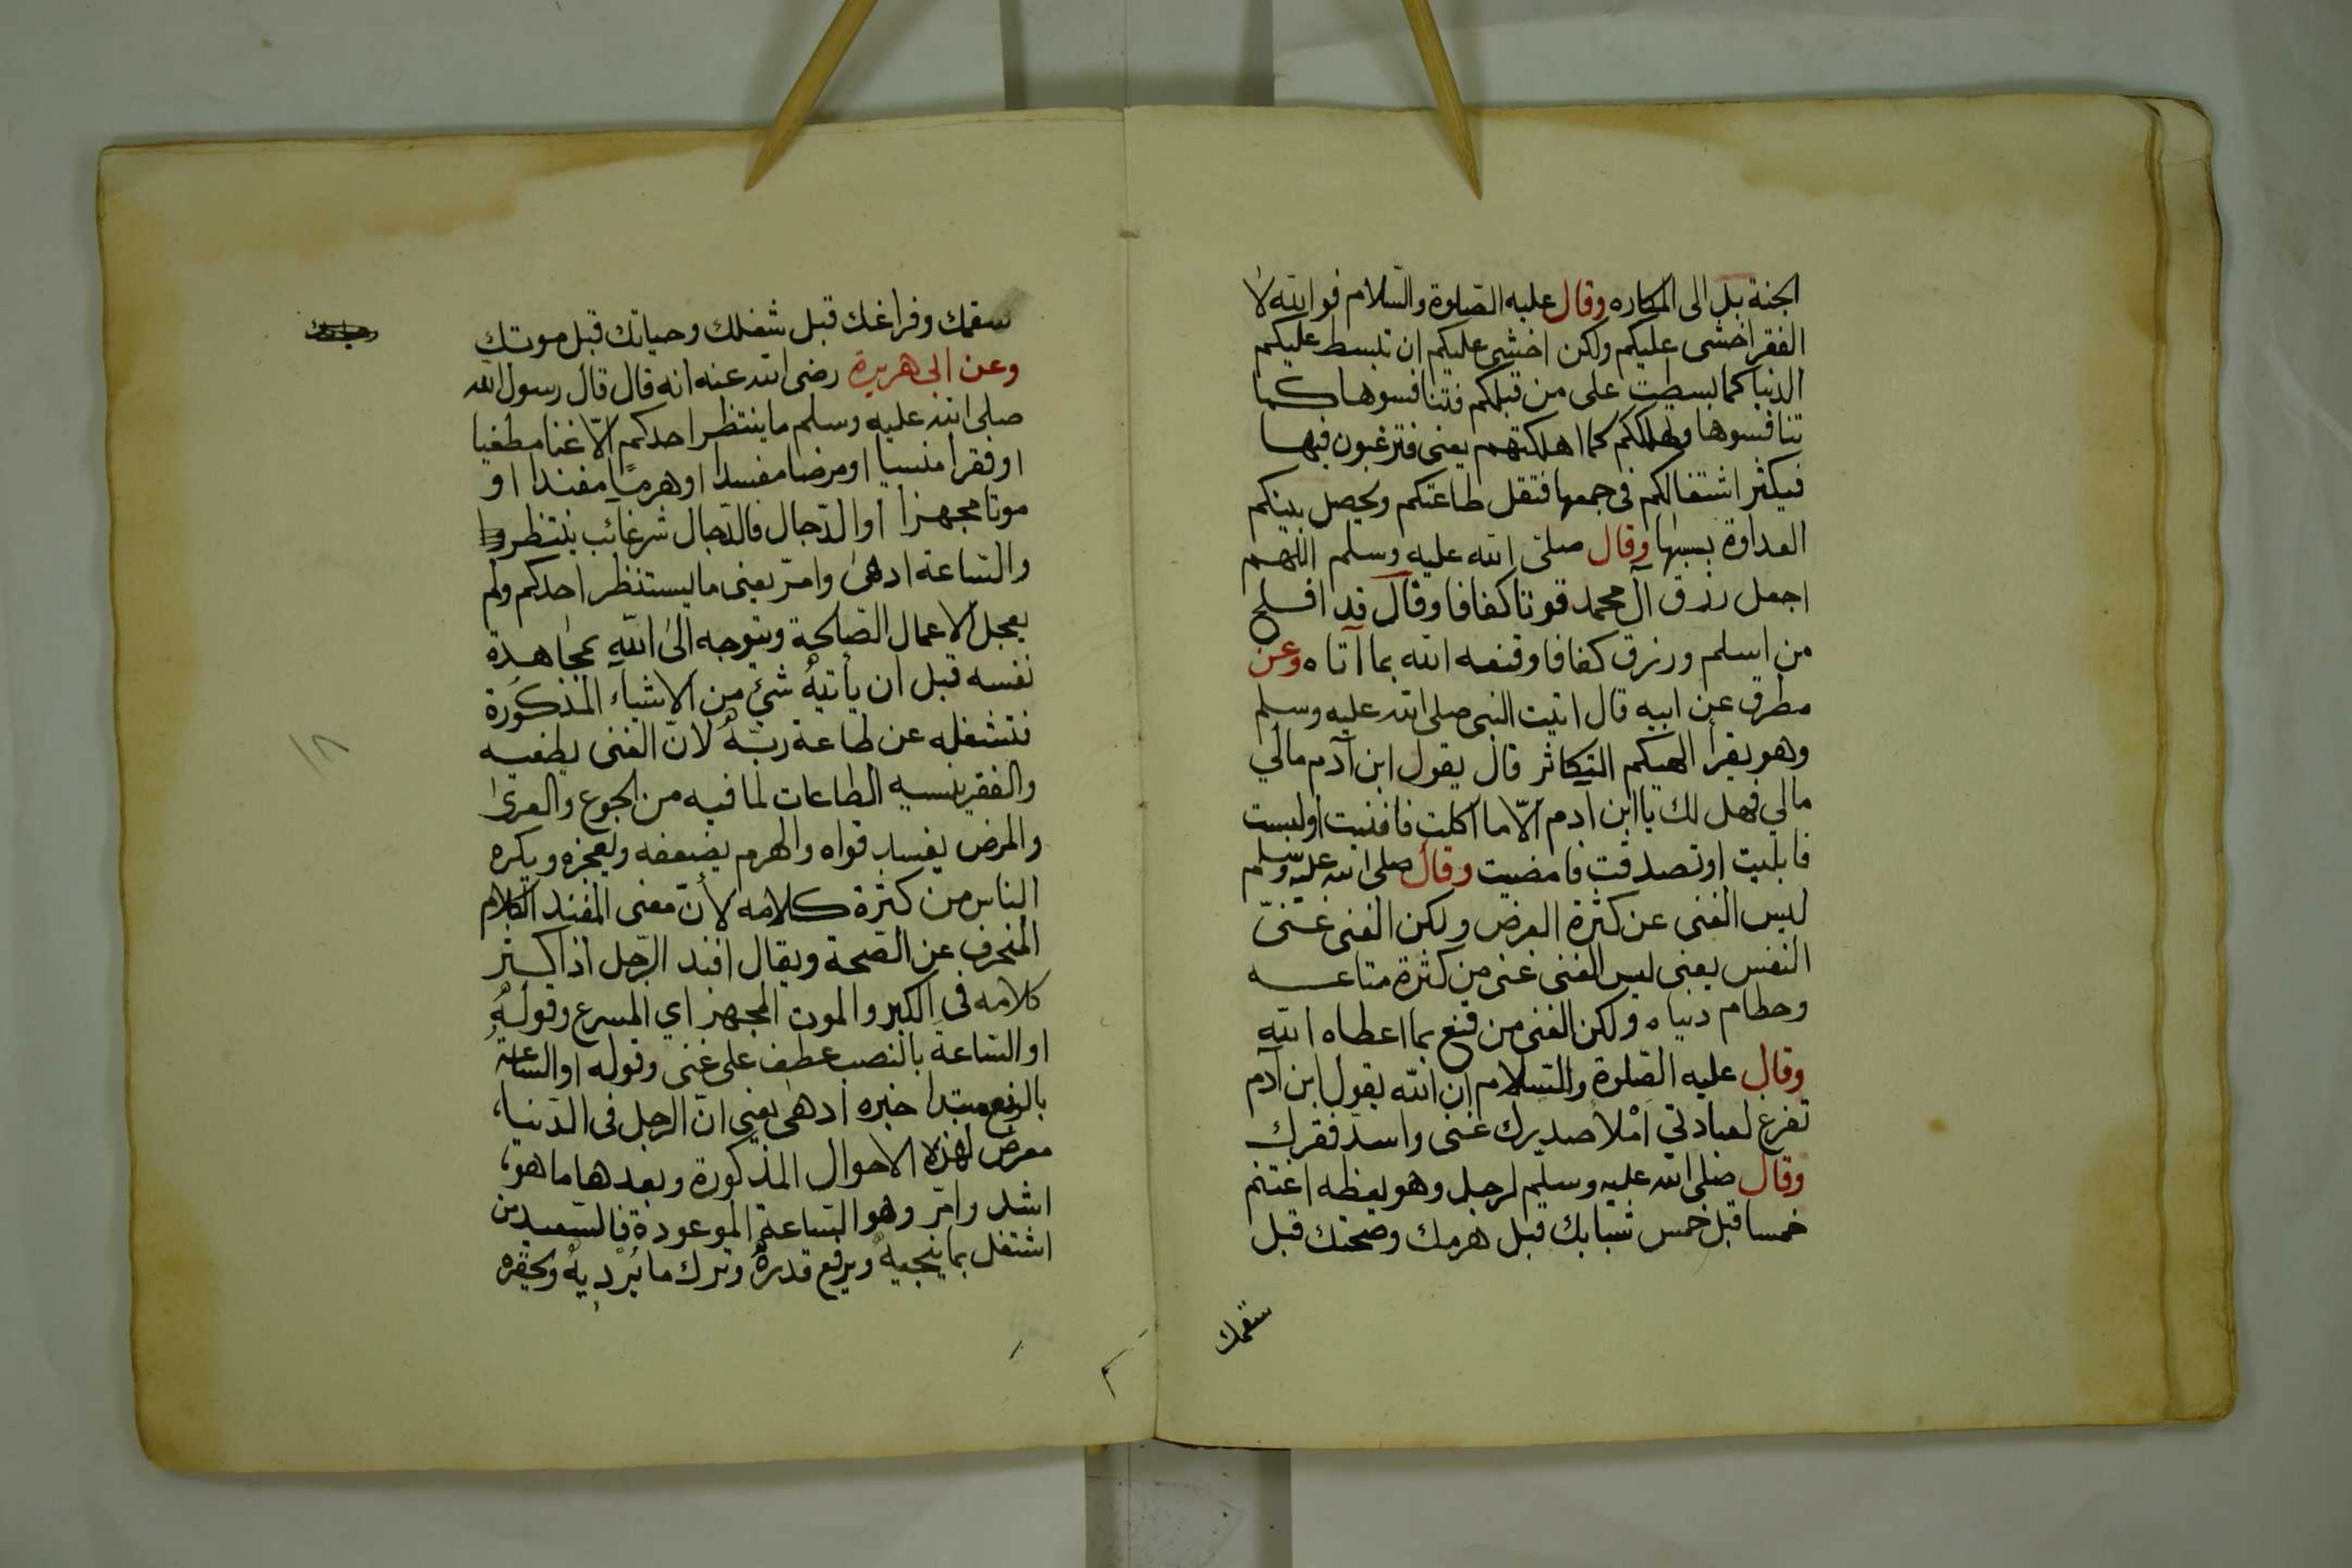 الجنة بل الى المكاره وقال عليه الصّلوة والسّلام فوالله لا
الفقر اخشى عليكم ولكن اخشى عليكم ان تبسط عليكم
الدنيا كما بسطت على من قبلكم فتنافسوها كما
تنافسوها وتهلككم كما اهلكتهم يعنى فترغبون فيها
فيكثر اشتغالكم فى جمعها فتقل طاعتكم ويحصل بينكم
العداوة بسببها وقال صلى الله عليه وسلم اللهم
اجعل رزق آل محمد قوتا كفافا وقال قد افلح
من اسلم ورزق كفافا وقنعه الله بما آتاه وعن
مطرف عن ابيه قال اتيت النبى صلى الله عليه وسلم
وهو يقرأ الهيكم التكاثر قال يقول ابن آدم مالي
مالي فهل لك يا ابن ادم الّا ما اكلت فافنيت اولبست
فابليت او تصدقت فامضيت وقال صلى الله عليه وسلم
ليس الغنى عن كثرة العرض ولكن الغنى غنىّ
النفس يعنى ليس الغنى غنى من كثرة متاعه
وحطام دنياه ولكن الغنى من قنع بما اعطاه الله
وقال عليه الصّلوة والسّلام ان الله يقول ابن آدم
تفرغ لعبادتي امْلأ صديرك غنى واسدّ فقرك
وقال صلى الله عليه وسلم لرجل وهو يعظه اغتنم
خمسا قبل خمس شبابك قبل هرمك وصحتك قبل
سقمك
سقمك وفراغك قبل شغلك وحياتك قبل موتك
وعن ابى هريرة رضى الله عنه انه قال قال رسول الله
صلى الله عليه وسلم ما ينتظر احدكم الّا غنا مطغيا
او فقرا منسيا او مرضا مفسدا او هرمًا مفندا او
موتا مجهزا او الدّجال فالدّجال شر غائب ينتظر
والسّاعة ادهى وامرّ يعنى ما يستنظر احدكم ولم
يعجل الاعمال الصّالحة ويتوجه الى الله بمجاهدة
نفسه قبل ان يأتيهُ شئ من الاشياء المذكورة
فتشغله عن طاعة ربّهُ لانّ الغنى يطغيه
والفقر ينسيه الطاعات لما فيه من الجوع والعرى
والمرض يفسد قواه والهرم يضعفه ويعجزه ويكره
الناس من كثرة كلامه لأنّ معنى المفند الكلام
المنحرف عن الصّحة ويقال افند الرّجل اذا كثر
كلامه فى الكبر والموت المجهز اي المسرع وقولهُ
او السّاعةَ بالنصب عطف على غنى وقوله او السّاعةُ
بالرفع مبتدا خبره ادهى يعنى انّ الرجل فى الدّنيا،
معرض لهذه الاحوال المذكورة وبعدها ما هو،
اشد وامرّ وهو السّاعة الموعودة فالسّعيد من
اشتغل بما ينجيهُ ويرفع قدرهُ وترك ما يُرْديهُ ويحقره
١٨